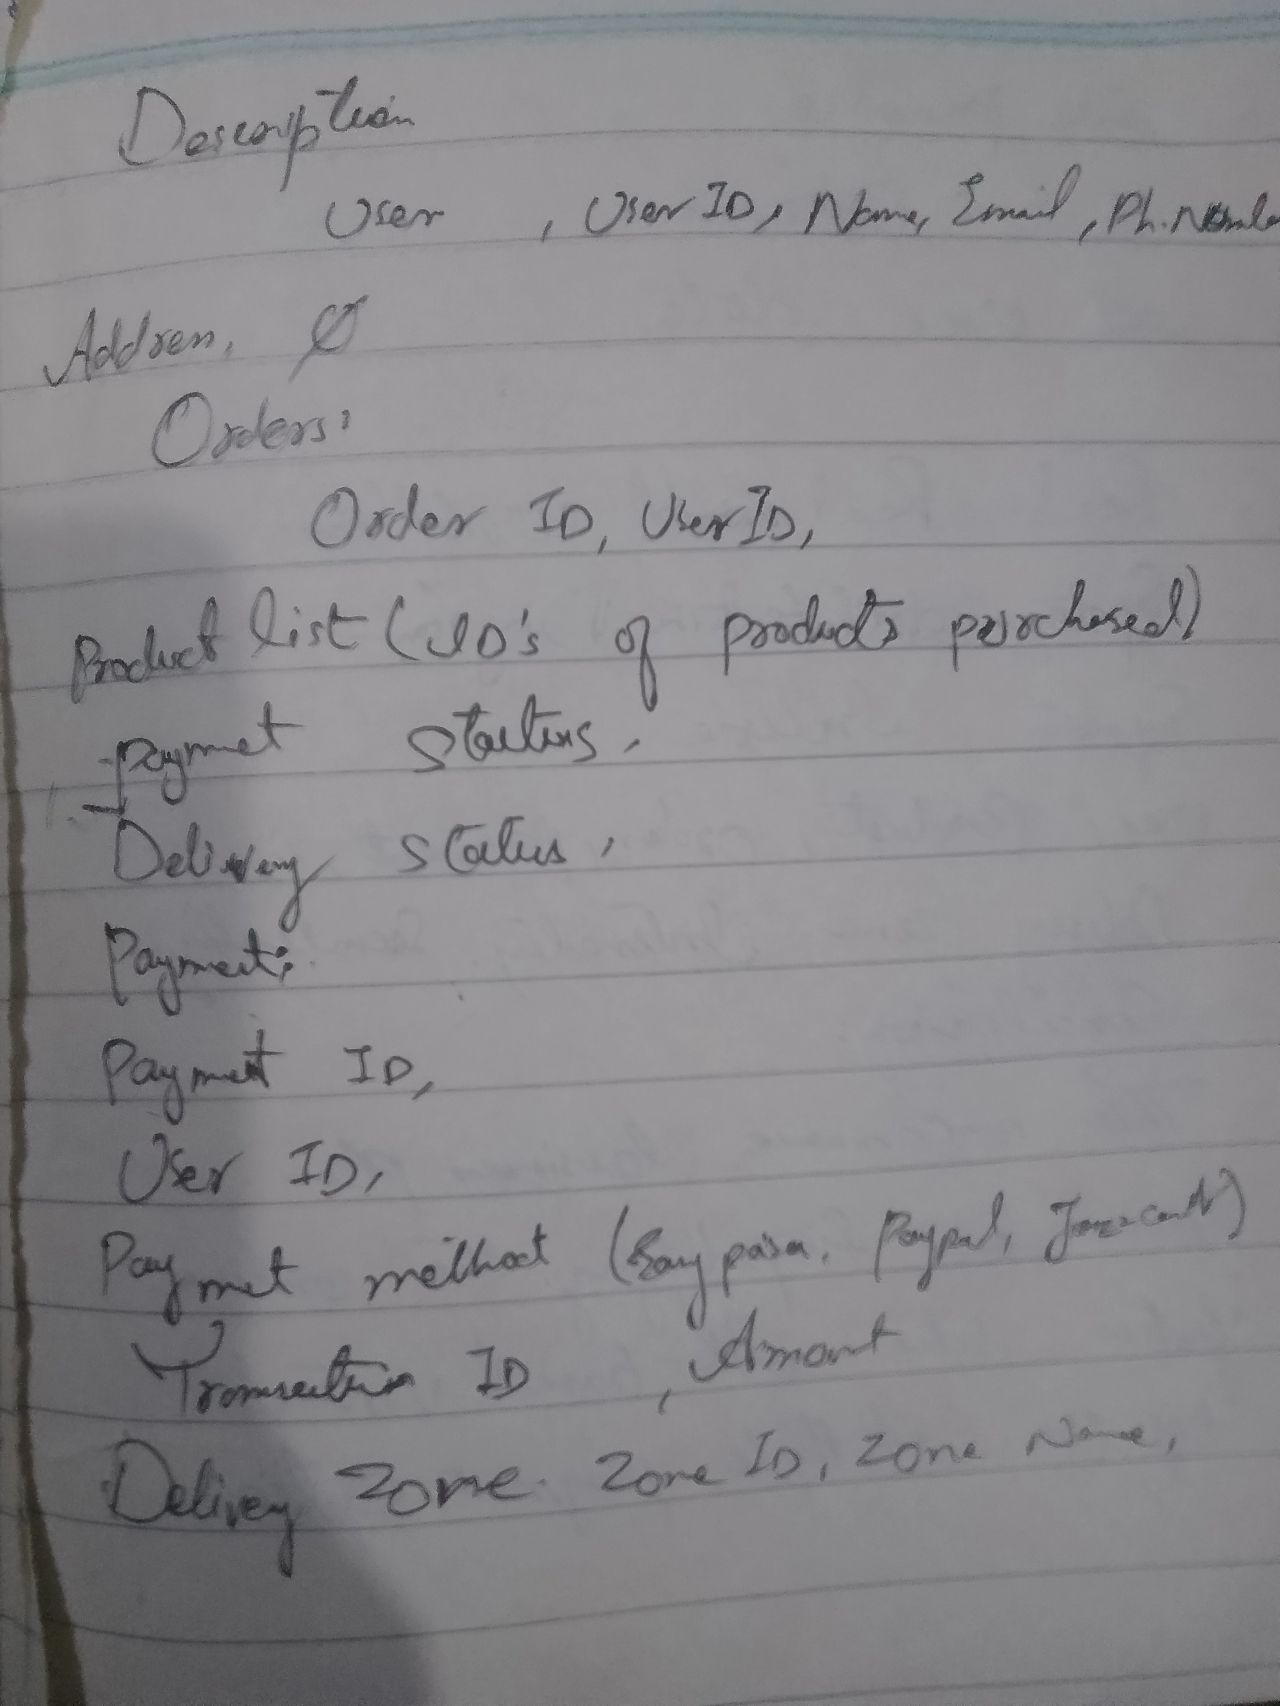 Description
User , User ID, Name, Email, Ph. Number
Address,
Orders:
Order ID, User ID,
Product list (ID's of products purchased)
Paymet Status,
Delivery status,
Payment:
Payment ID,
User ID,
Paymet method (Easypaisa, Paypal, Jazzcash)
Transaction ID , Amount
Delivey Zone. Zone ID, Zone Name,